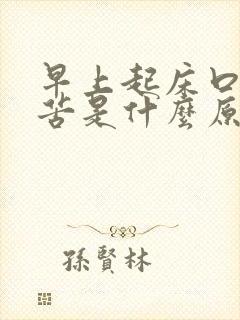 早上起床口
苦是什麼原
孫賢林